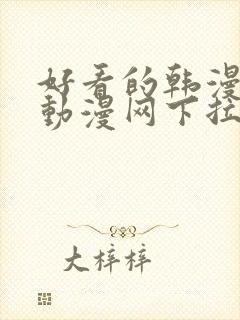 好看的韩漫
動漫网下拉
大梓梓